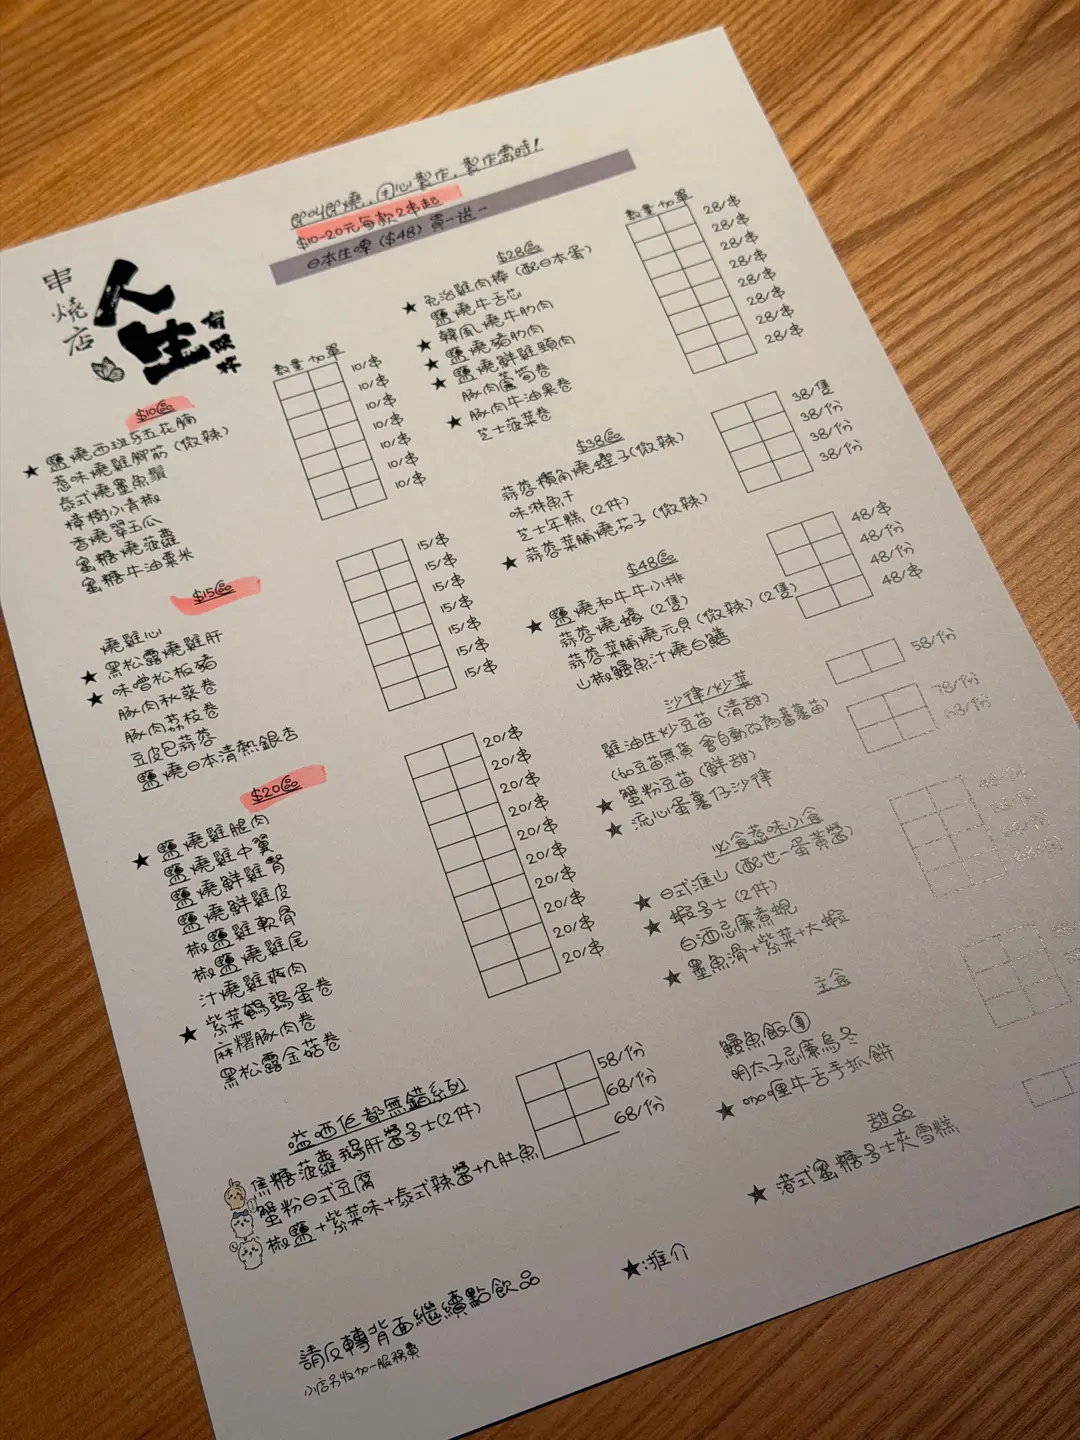 即叫即燒，用心製作，製作需時！
$10-20元每款2串起
日本生啤 ($48) 買一送一
串燒店
人生
有限杯
$10區
數量 加單
★ 鹽燒西班牙五花腩 10/串
惹味燒雞腳筋 (微辣) 10/串
泰式燒墨魚鬚 10/串
樟樹小青椒 10/串
香燒翠玉瓜 10/串
蜜糖燒菠蘿 10/串
蜜糖牛油粟米 10/串
$15區
燒雞心 15/串
★ 黑松露燒雞肝 15/串
★ 味噌松板豬 15/串
豚肉秋葵卷 15/串
豚肉荔枝卷 15/串
豆皮包蒜蓉 15/串
鹽燒日本清熱銀杏 15/串
$20區
★ 鹽燒雞腿肉 20/串
鹽燒雞中翼 20/串
鹽燒鮮雞腎 20/串
鹽燒鮮雞皮 20/串
椒鹽雞軟骨 20/串
椒鹽燒雞尾 20/串
汁燒雞爽肉 20/串
★ 紫菜鵪鶉蛋卷 20/串
麻糬豚肉卷 20/串
黑松露金菇卷 20/串
嗌哂佢都無錯系列
焦糖菠蘿鵝肝醬多士(2件) 58/份
蟹粉日式豆腐 68/份
椒鹽+紫菜味+泰式辣醬+九肚魚 68/份
請反轉背面繼續點飲品
小店另收加一服務費
$28區
數量 加單
★ 免治雞肉棒 (配日本蛋) 28/串
鹽燒牛舌芯 28/串
★ 韓風燒牛肋肉 28/串
★ 鹽燒豬肋肉 28/串
★ 鹽燒鮮雞頸肉 28/串
豚肉蘆筍卷 28/串
★ 豚肉牛油果卷 28/串
芝士菠菜卷 28/串
$38區
蒜蓉欖角燒蟶子(微辣) 38/隻
味淋魚干 38/份
芝士年糕 (2件) 38/份
★ 蒜蓉菜脯燒茄子 (微辣) 38/份
$48區
★ 鹽燒和牛牛小排 48/串
蒜蓉燒蠔 (2隻) 48/份
蒜蓉菜脯燒元貝 (微辣) (2隻) 48/份
山椒鰻魚汁燒白鱔 48/串
沙律/炒菜
雞油生炒豆苗 (清甜) 58/份
(如豆苗無貨 會自動改為番薯苗)
★ 蟹粉豆苗 (鮮甜) 78/份
★ 流心蛋薯仔沙律
必食惹味小食
★ 日式淮山 (配世一蛋黃醬)
★ 蝦多士 (2件)
白酒忌廉煮蜆
★ 墨魚滑+紫菜+大蝦
主食
鰻魚飯
明太子忌廉烏冬
★ 咖喱牛舌手抓餅
甜品
★ 港式蜜糖多士夾雪糕
★:推介